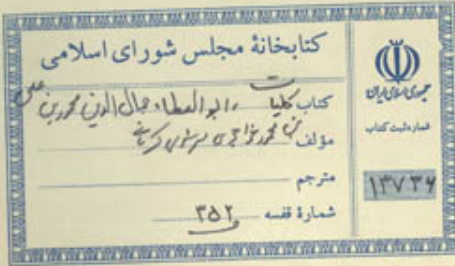 کتابخانهٔ مجلس شورای اسلامی
کتاب کلیات ابوالعطاء جمال الدین محمود بن علی
مؤلف بن محمود خواجوی مرشدی کرمانی
مترجم
شمارهٔ قفسه ۳۵۲
جمهوری اسلامی ایران
شماره ثبت کتاب
۱۳۷۳۶